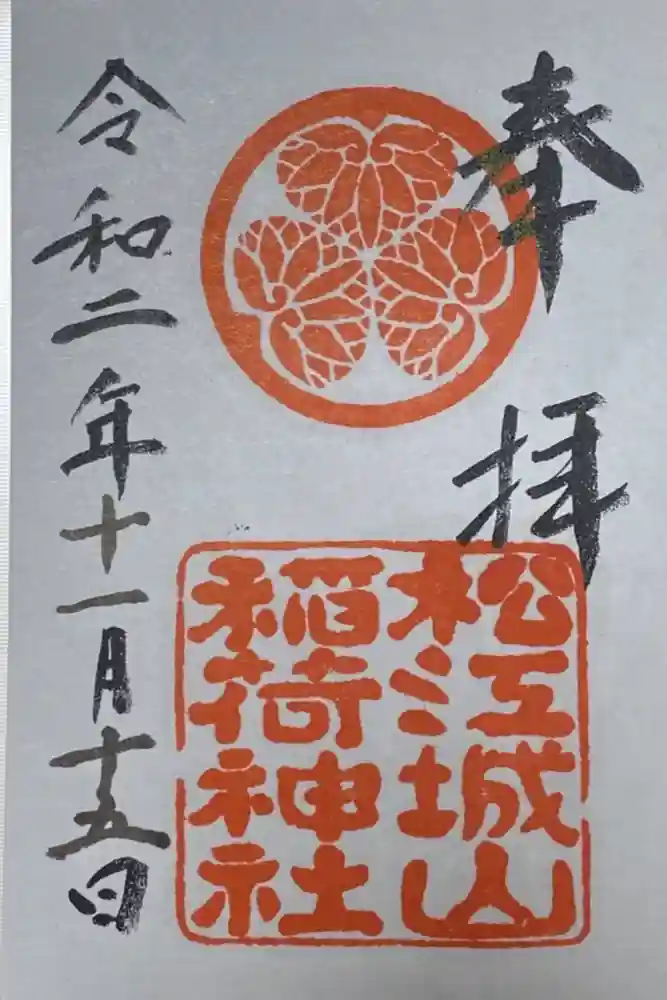 奉拝
松江城山
稲荷神社
令和二年十一月十五日